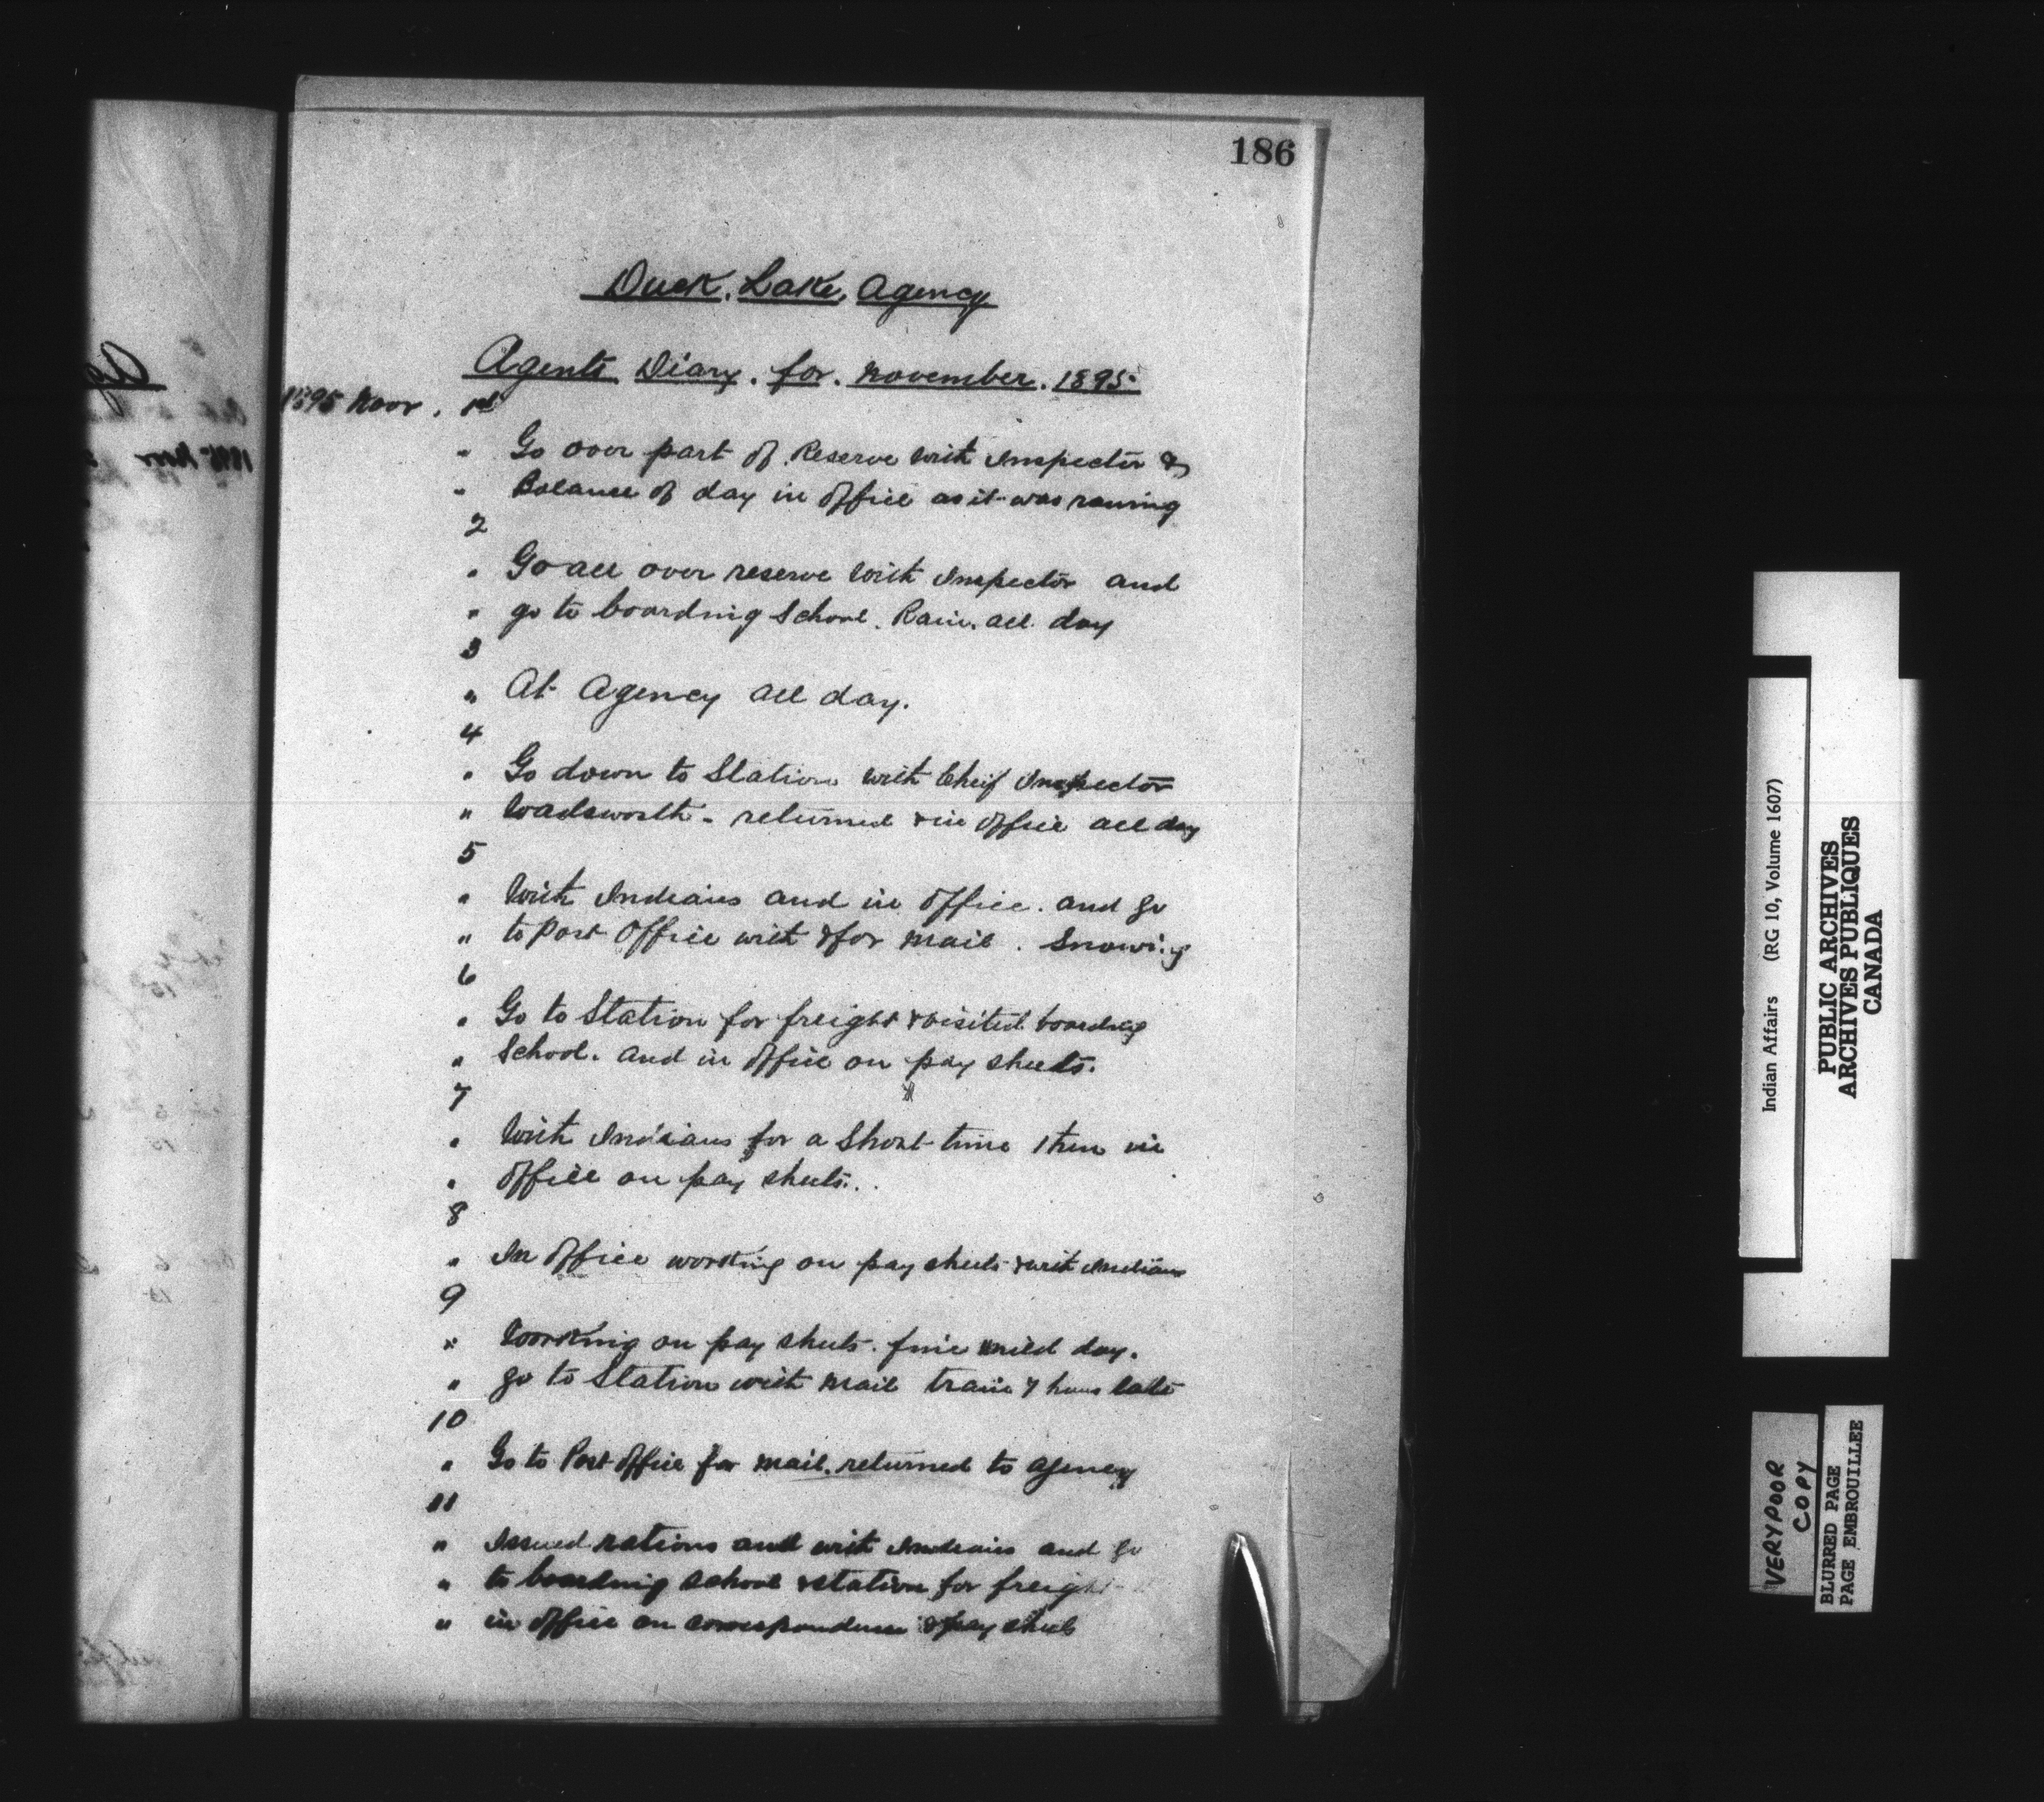 186
Duck. Lake. Agency
Agents Diary. for. November. 1895.
1895 Novr. 1st
" Go over part of Reserve with Inspector &
" Balance of day in Office as it was raining
2
" Go all over reserve with Inspector and
" go to boarding School. Rain. all day
3
" At Agency all day.
4
" Go down to Station with Cheif Inspector
" Wadsworth - returned & in Office all day
5
" With Indians and in Office. and go
" to Post Office with & for mail. Snowing
6
" Go to Station for freight & visited boarding
" School. and in Office on pay sheets.
7
" With Indians for a Short time then in
" Office on pay sheets.
8
" In Office working on pay sheets & with Indians
9
" Working on pay sheets. fine mild day.
" go to Station with mail train 7 hours late
10
" Go to Post Office for mail. returned to Agency
11
" Issued rations and with Indians and go
" to boarding school & station for freight
" in Office on correspondence & pay sheets
Indian Affairs (RG 10, Volume 1607)
PUBLIC ARCHIVES
ARCHIVES PUBLIQUES
CANADA
VERY POOR
COPY
BLURRED PAGE
PAGE EMBROUILLEE